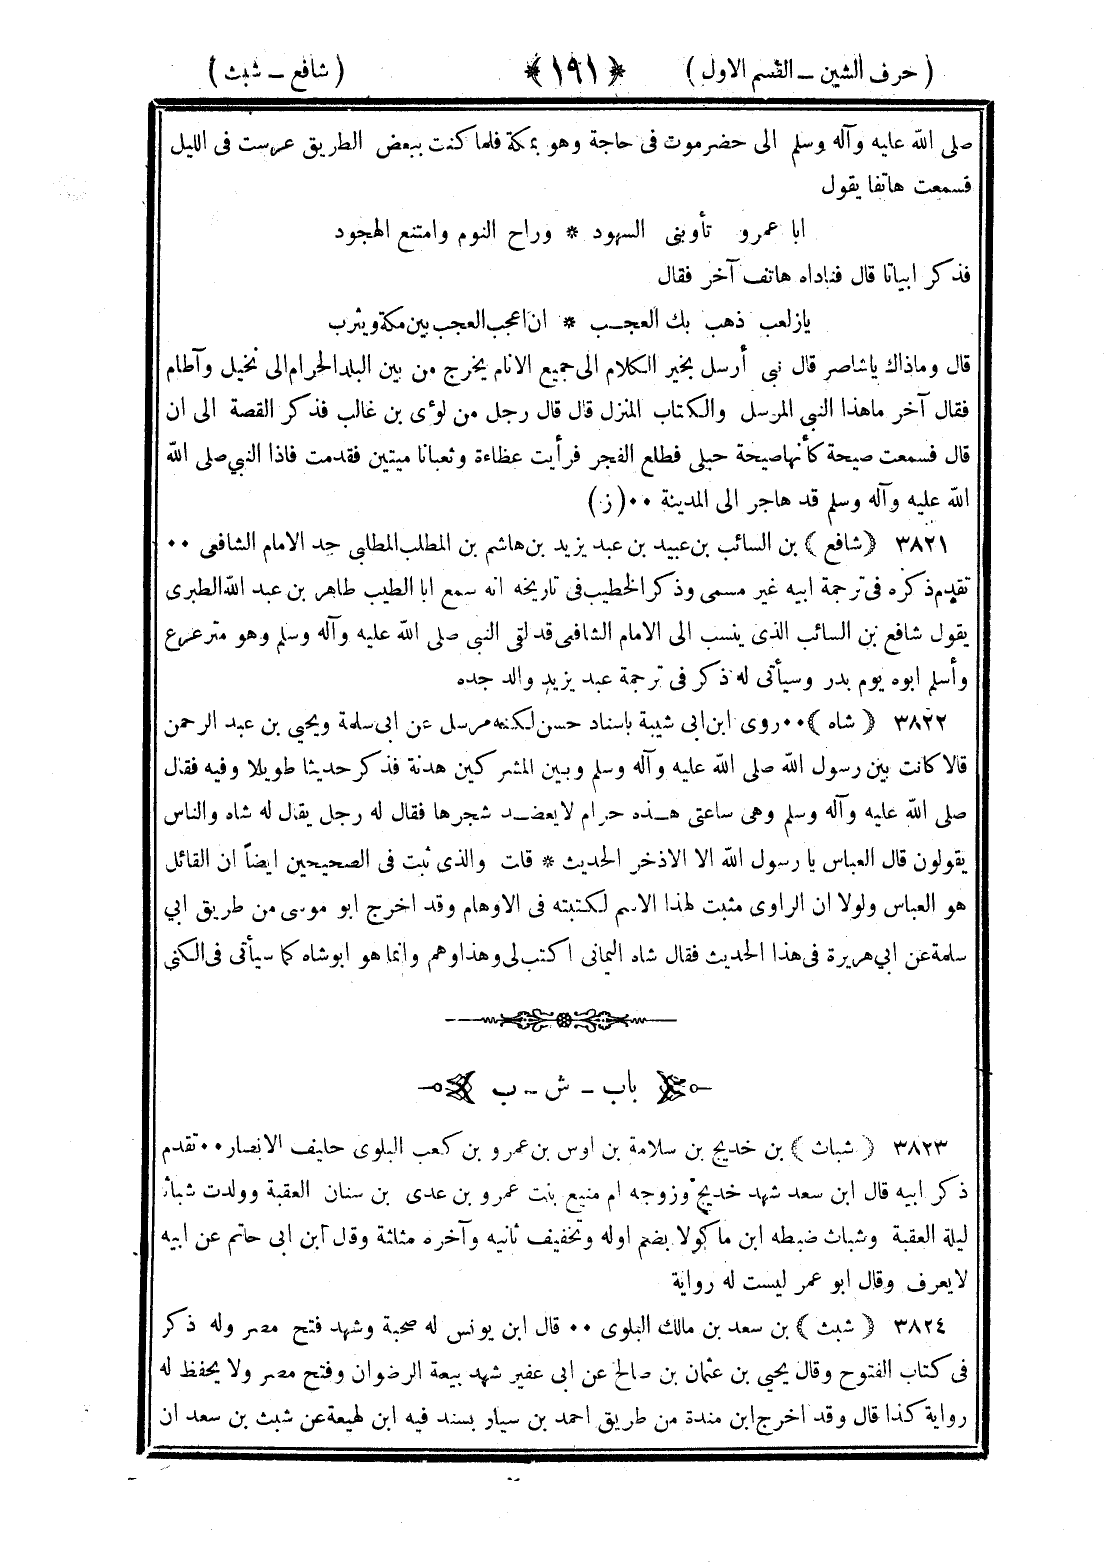 ( حرف الشين ـ القسم الاول ) ﴿ ١٩١ ﴾ ( شافع ـ شبث )
صلى الله عليه وآله وسلم الى حضرموت فى حاجة وهو بمكة فلما كنت ببعض الطريق عرست فى الليل
فسمعت هاتفا يقول
ابا عمرو تأوبنى السهود * وراح النوم وامتنع الهجود
فذكر ابياتا قال فناداه هاتف آخر فقال
يازلعب ذهب بك العجـب * ان اعجب العجب بين مكة ويثرب
قال وماذاك ياشاصر قال نبى أرسل بخير الكلام الى جميع الانام يخرج من بين البلد الحرام الى نخيل وآطام
فقال آخر ماهذا النبى المرسل والكتاب المنزل قال قال رجل من لوءى بن غالب فذكر القصة الى ان
قال فسمعت صيحة كأنها صيحة حبلى فطلع الفجر فرأيت عظاءة وثعبانا ميتين فقدمت فاذا النبي صلى الله
الله عليه وآله وسلم قد هاجر الى المدينة ٠٠ (ز)
٣٨٢١ ﴿ شافع ﴾ بن السائب بن عبيد بن عبد يزيد بن هاشم بن المطلب المطلبي جد الامام الشافعى ٠٠
تقدم ذكره فى ترجمة ابيه غير مسمى وذكر الخطيب فى تاريخه انه سمع ابا الطيب طاهر بن عبد الله الطبرى
يقول شافع بن السائب الذى ينسب الى الامام الشافعى قد لقى النبى صلى الله عليه وآله وسلم وهو مترعرع
وأسلم ابوه يوم بدر وسيأتى له ذكر فى ترجمة عبد يزيد والد جده
٣٨٢٢ ﴿ شاه ﴾ ٠٠ روى ابن ابى شيبة باسناد حسن لكنه مرسل عن ابى سلمة ويحيى بن عبد الرحمن
قالا كانت بين رسول الله صلى الله عليه وآله وسلم وبين المشركين هدنة فذكر حديثا طويلا وفيه فقال
صلى الله عليه وآله وسلم وهى ساعتى هـذه حرام لايعضـد شجرها فقال له رجل يقال له شاه والناس
يقولون قال العباس يا رسول الله الا الاذخر الحديث * قلت والذى ثبت فى الصحيحين ايضاً ان القائل
هو العباس ولولا ان الراوى مثبت لهذا الاسم لكتبته فى الاوهام وقد اخرج ابو موسى من طريق ابي
سلمة عن ابي هريرة فى هذا الحديث فقال شاه اليمانى اكتب لى وهذا وهم وانما هو ابو شاه كما سيأتى فى الكنى
باب ـ ش ـ ب
٣٨٢٣ ﴿ شباث ﴾ بن خديج بن سلامة بن اوس بن عمرو بن كعب البلوى حليف الانصار ٠٠ تقدم
ذكر ابيه قال ابن سعد شهد خديج وزوجه ام منيع بنت عمرو بن عدى بن سنان العقبة وولدت شباث
ليلة العقبة وشباث ضبطه ابن ماكولا بضم اوله وتخفيف ثانيه وآخره مثلثة وقال ابن ابى حاتم عن ابيه
لايعرف وقال ابو عمر ليست له رواية
٣٨٢٤ ﴿ شبث ﴾ بن سعد بن مالك البلوى ٠٠ قال ابن يونس له صحبة وشهد فتح مصر وله ذكر
فى كتاب الفتوح وقال يحيى بن عثمان بن صالح عن ابى عفير شهد بيعة الرضوان وفتح مصر ولا يحفظ له
رواية كذا قال وقد اخرج ابن مندة من طريق احمد بن سيار بسند فيه ابن لهيعة عن شبث بن سعد ان